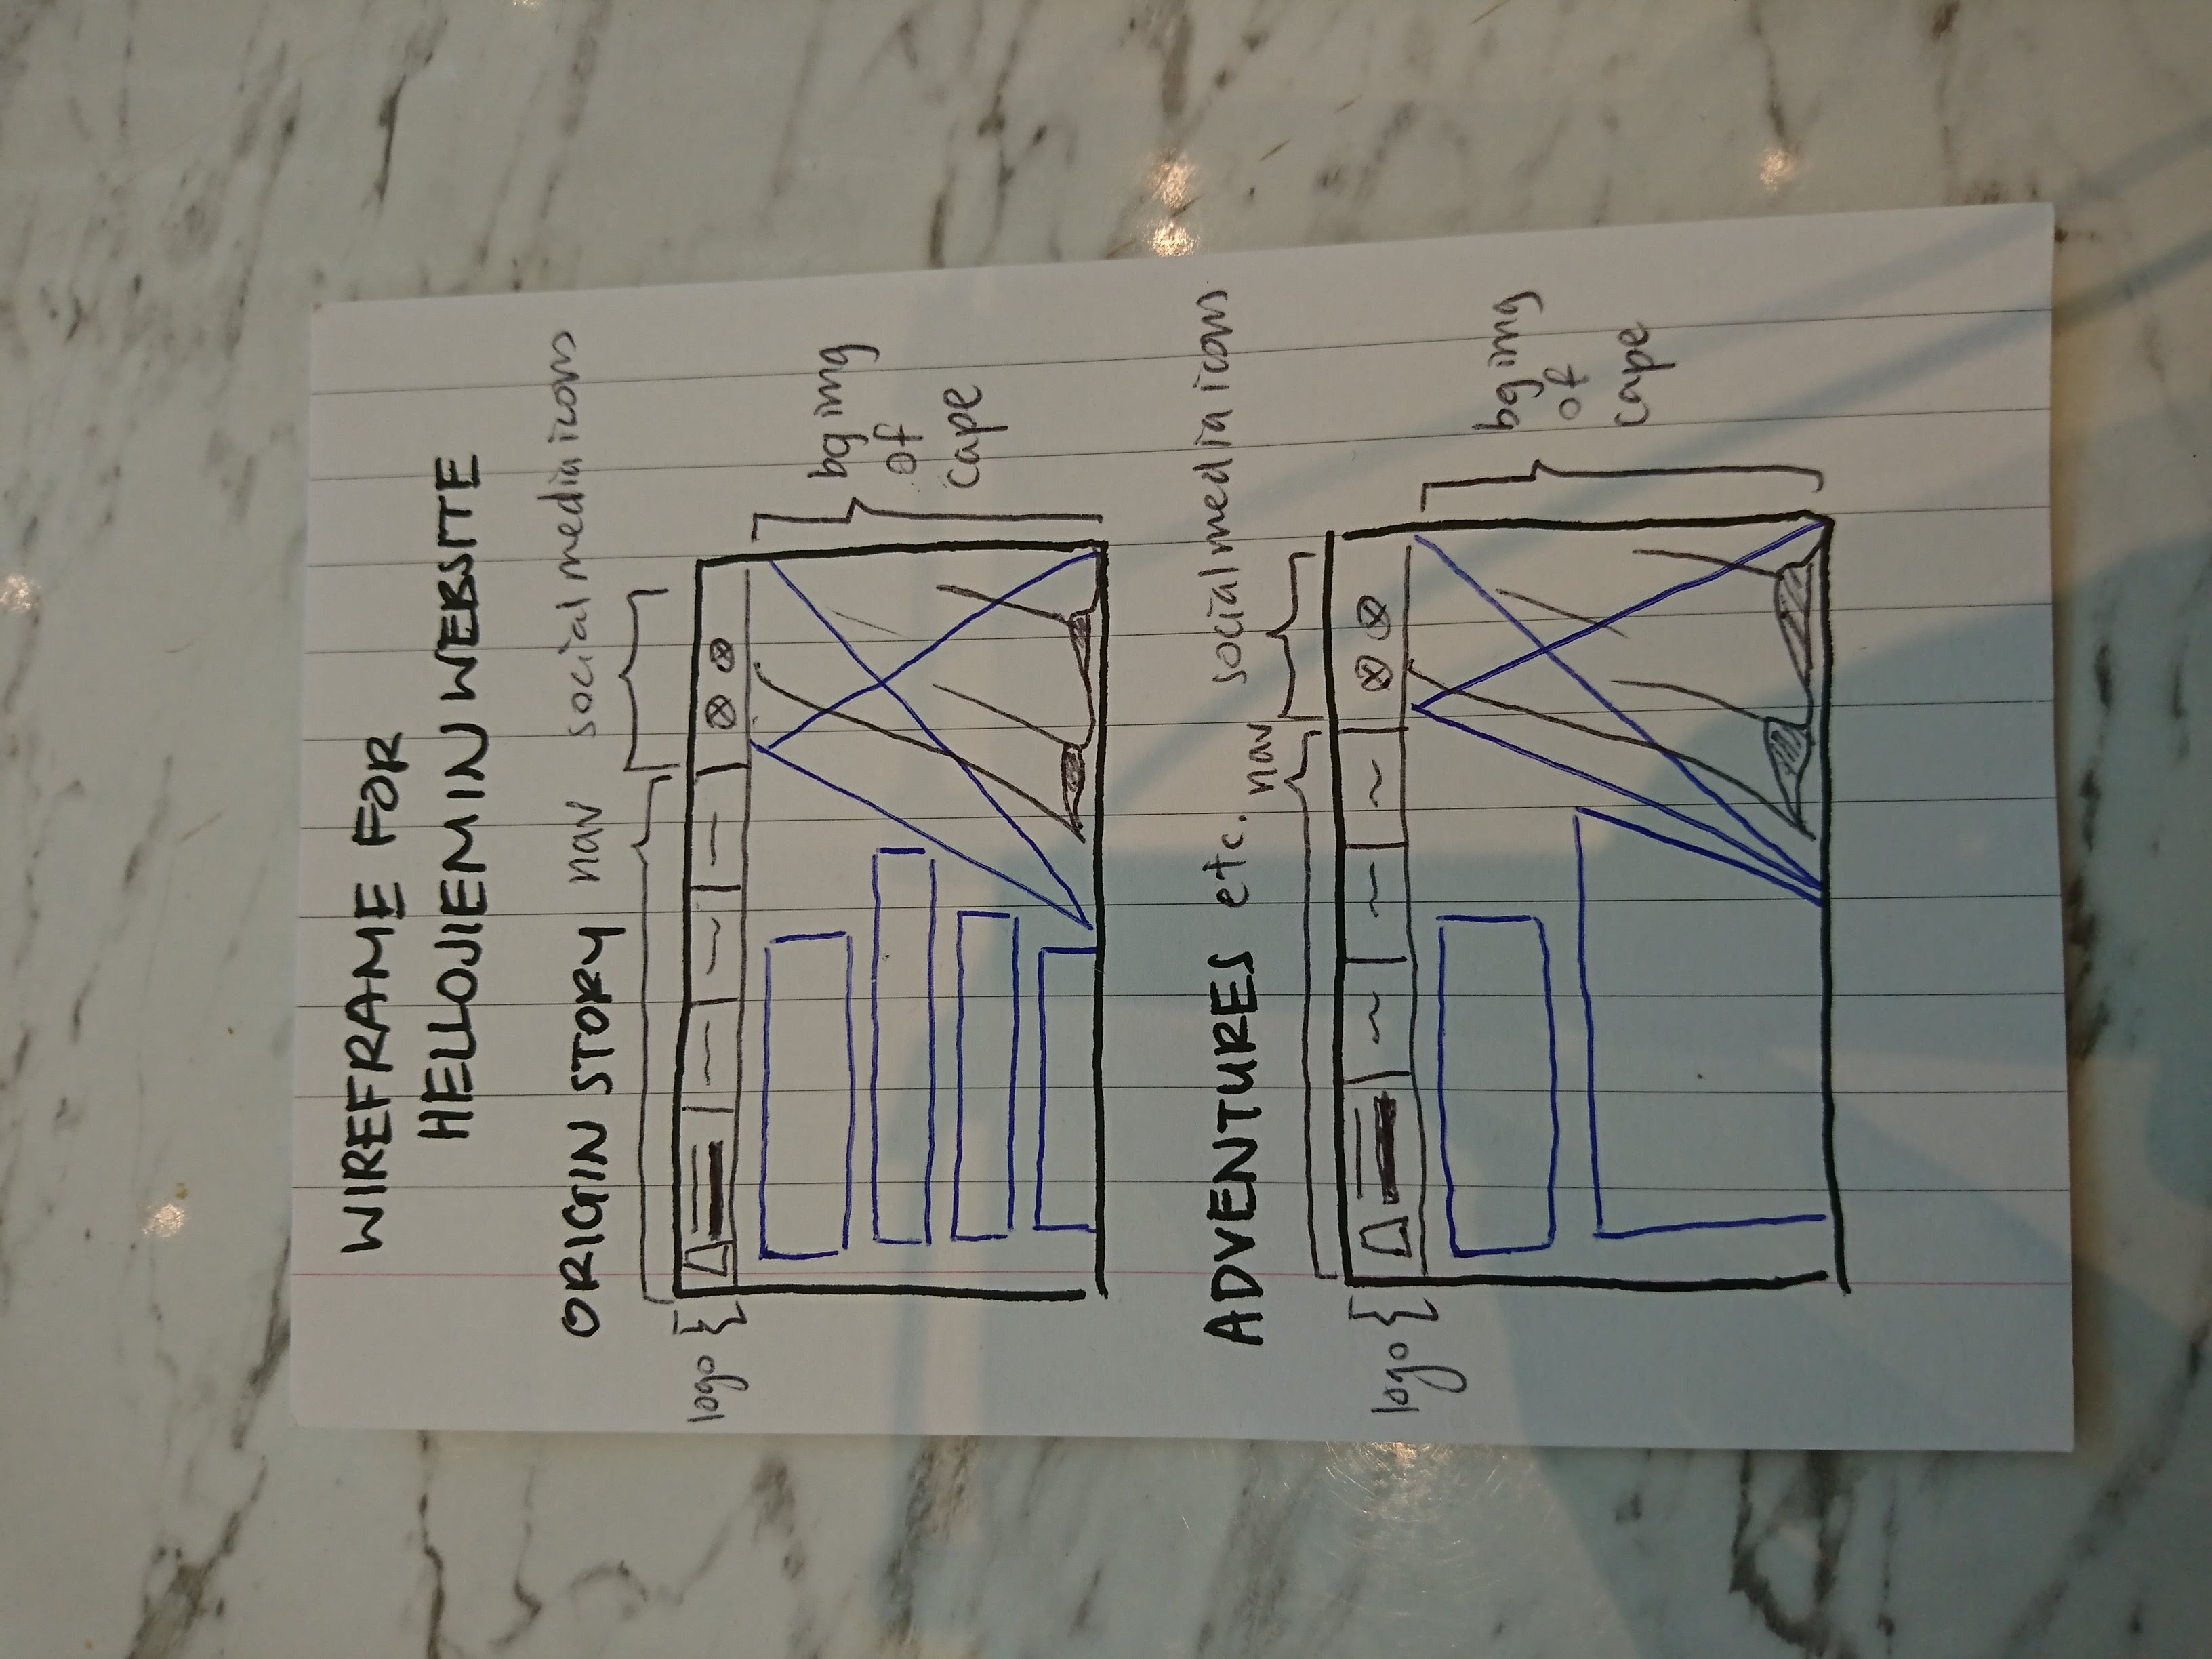 WIREFRAME FOR
HELLOJIEMIN WEBSITE
ORIGIN STORY nav social media icons
logo
bg img
of
cape
ADVENTURES etc. nav social media icons
logo
bg img
of
cape